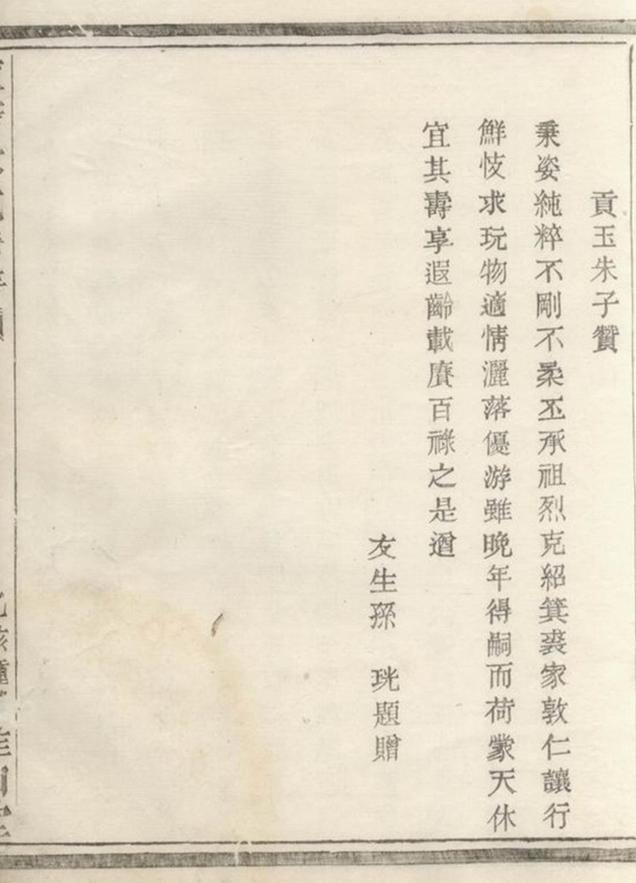 貢玉朱子贊
秉姿純粹不剛不柔丕承祖烈克紹箕裘家敦仁讓行
鮮忮求玩物適情灑落優游雖晚年得嗣而荷蒙天休
宜其壽享遐齡載賡百祿之是遒
友生孫 珖題贈